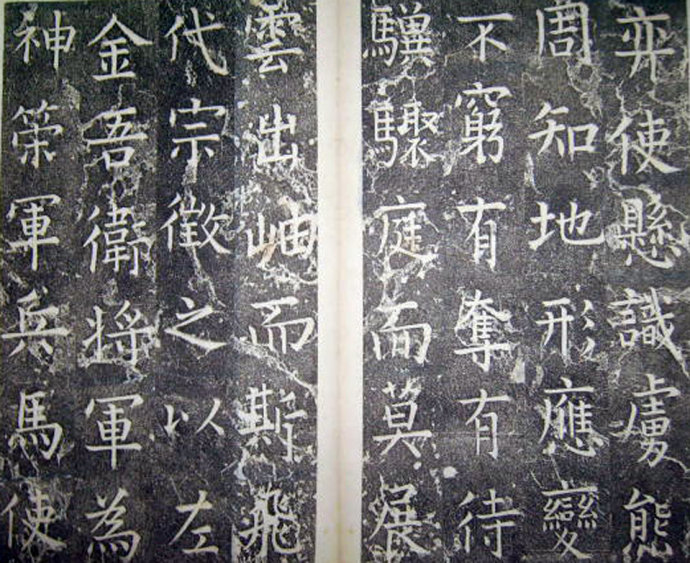 弈使懸識虜態
周知地形應變
不窮有奪有待
驥騄庭而莫展
雲出岫而斯飛
代宗徵之以左
金吾衛將軍為
神策軍兵馬使